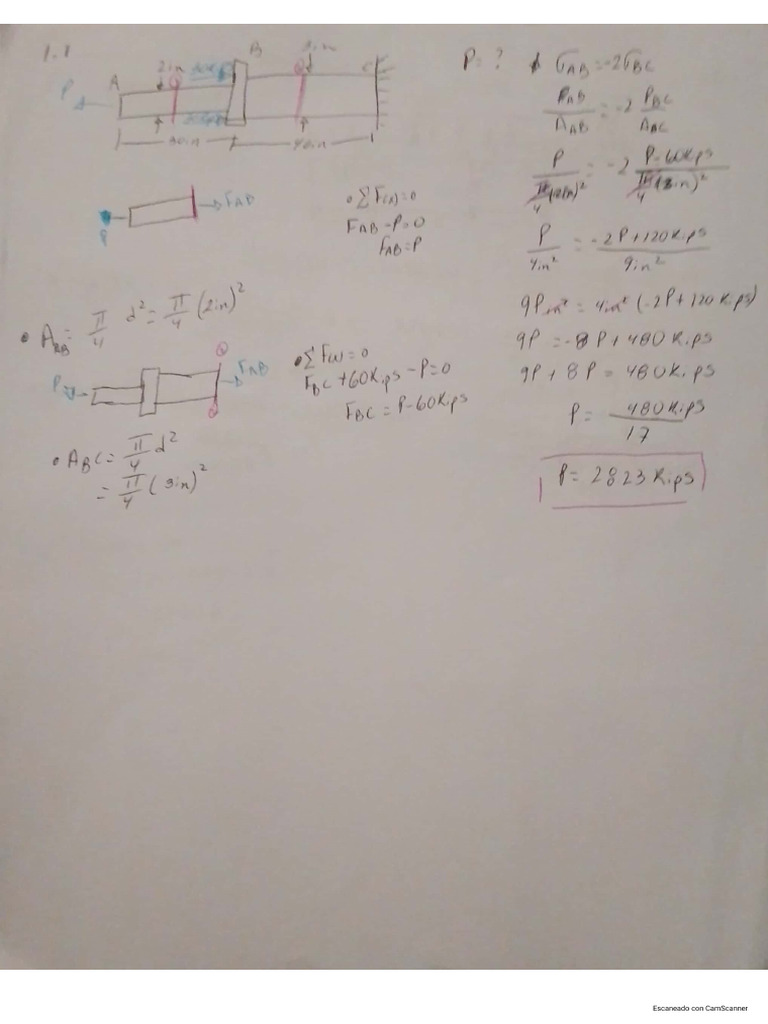 1.1
B
3in
2in
A
C
P
30in
40in
P
FAB
• ΣF(x)=0
FAB - P=0
FAB=P
• AAB= π/4 d²= π/4 (2in)²
P
FAB
• ΣF(x)=0
FBC +60Kips - P=0
FBC = P-60Kips
• ABC= π/4 d²
= π/4 (3in)²
P= ? σAB=-2σBC
PAB/AAB = -2 PBC/ABC
P/π/4(2in)² = -2 P-60Kips/π/4(3in)²
P/4in² = -2P+120Kips/9in²
9Pin² = 4in² (-2P+120Kips)
9P = -8P+480Kips
9P+8P = 480Kips
P= 480Kips/17
P= 2823Kips
Escaneado con CamScanner